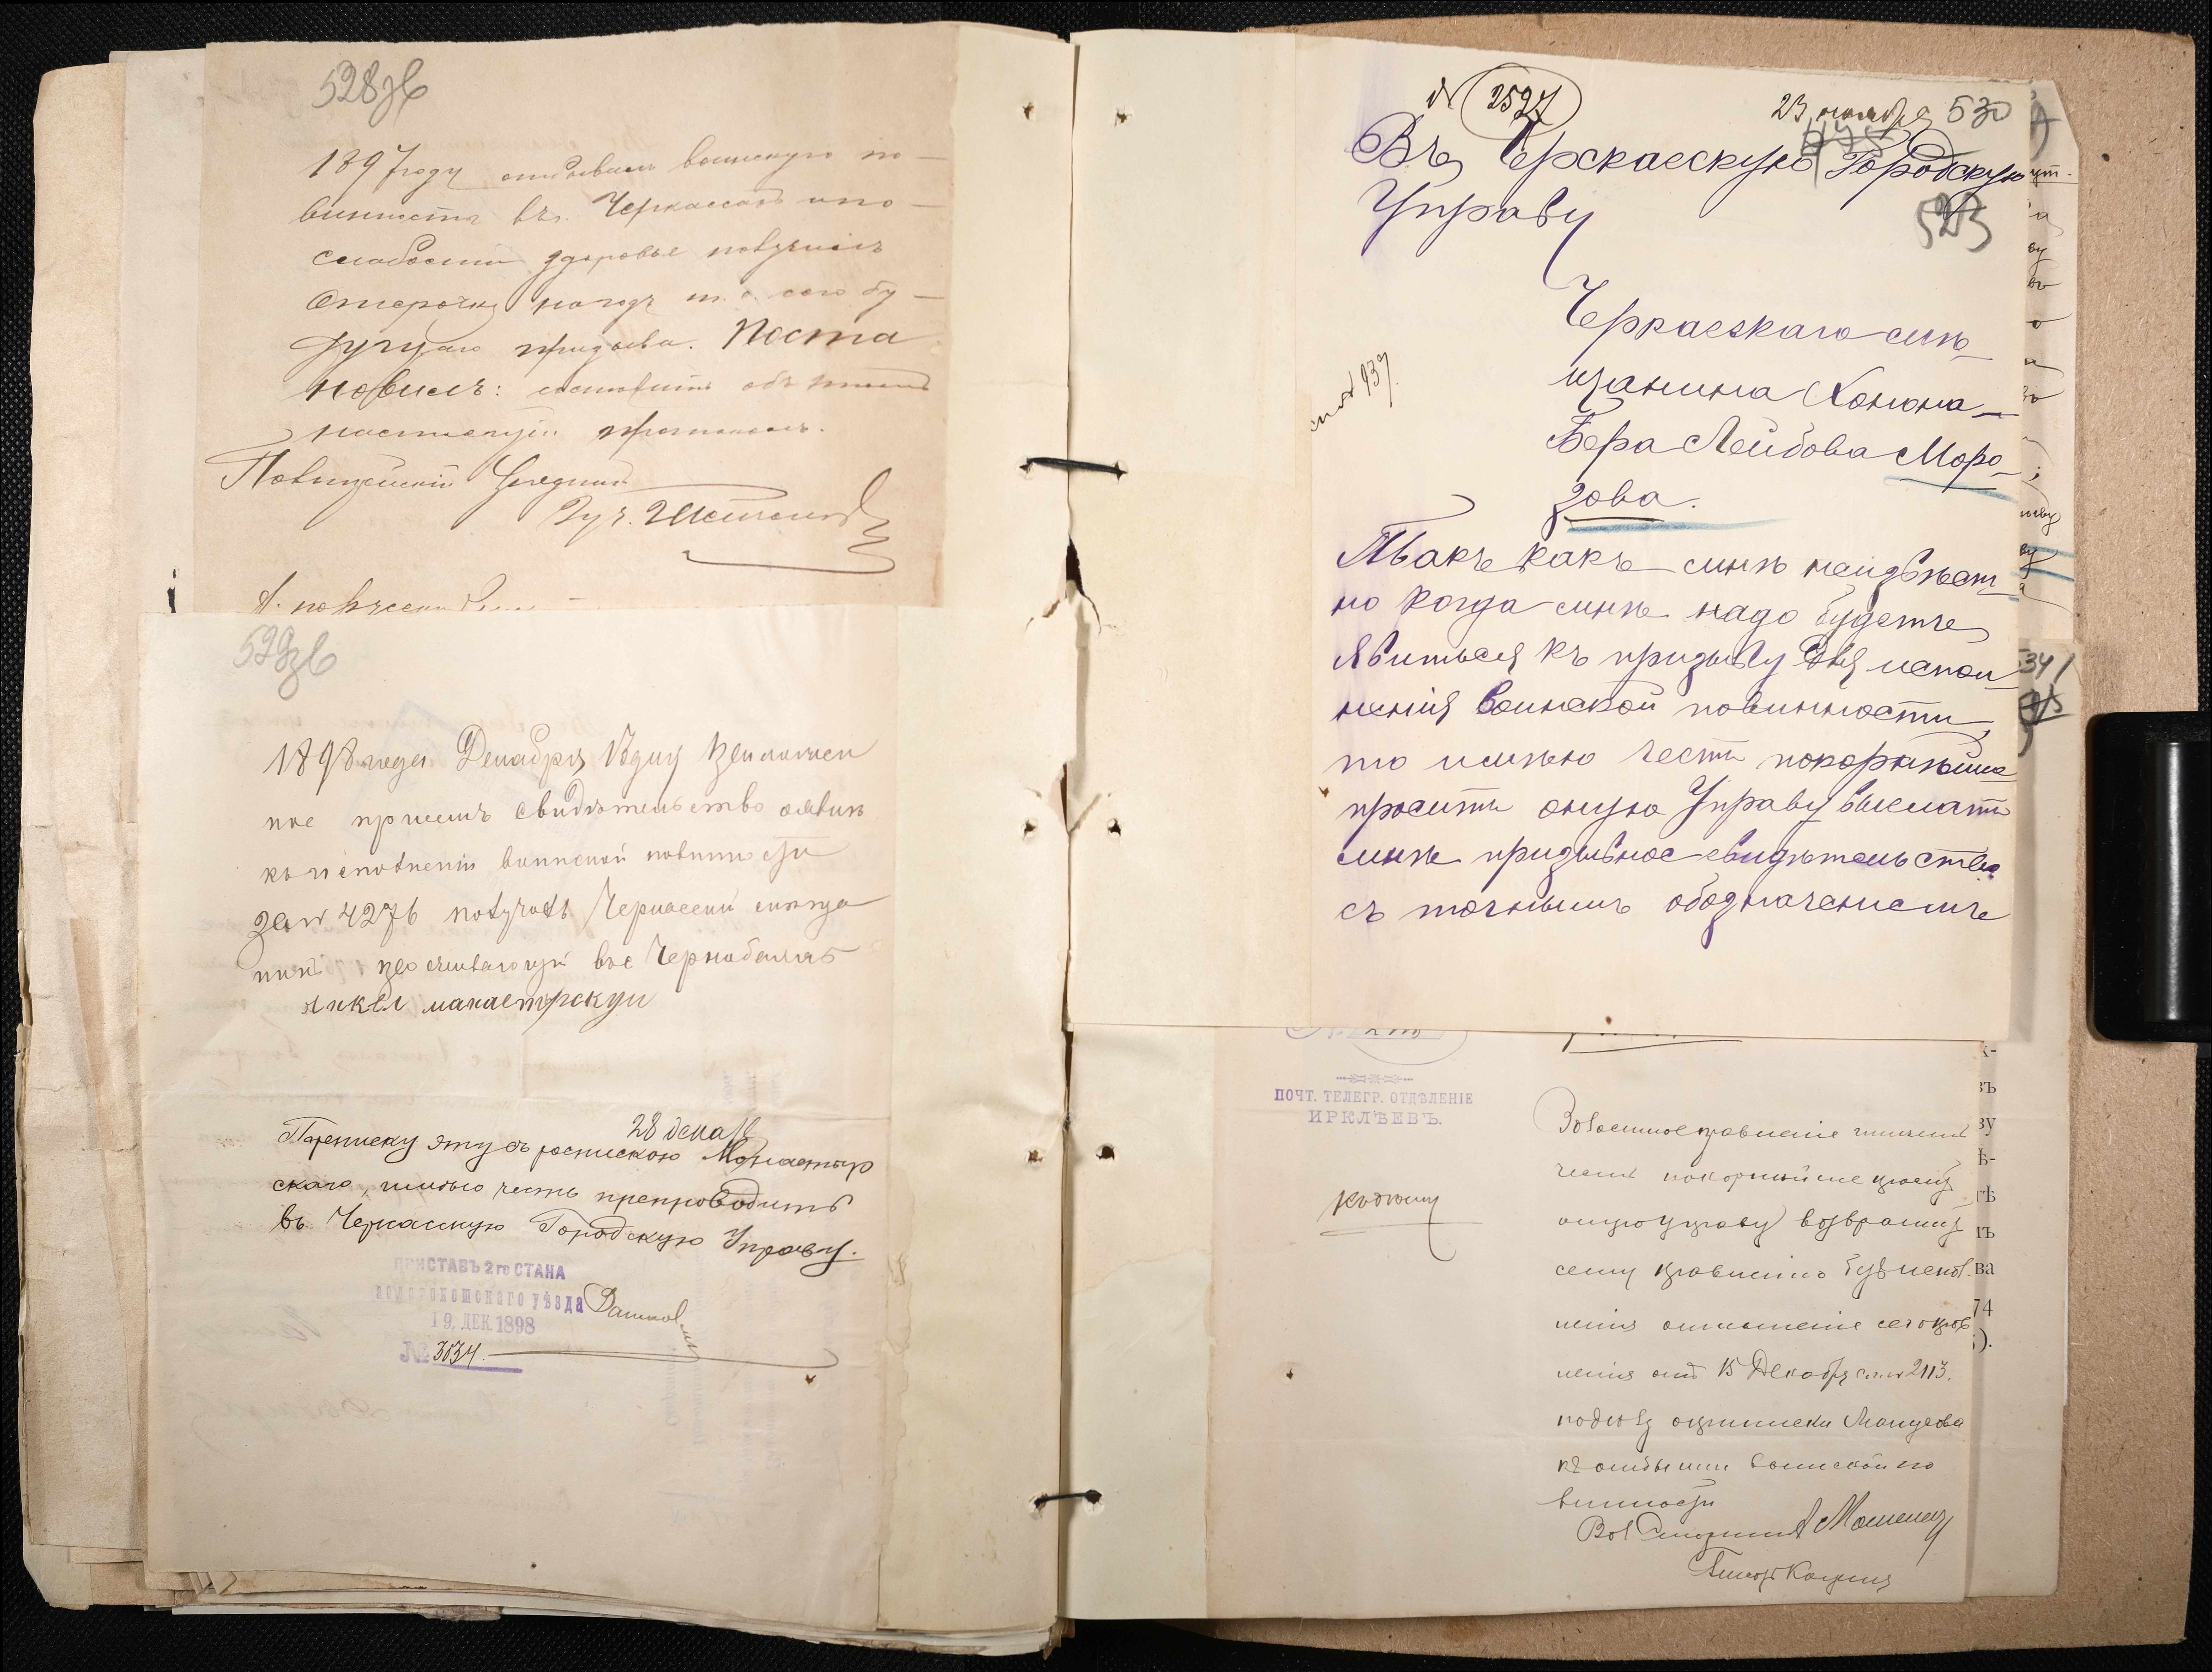 528 зв
1897 году отбывалъ воинскую по-
винность въ г. Черкассахъ и по
слабости здоровье получилъ
отсрочку на годъ т. е. до бу-
дущаго призыва. Поста
новилъ: составить объ этомъ
настоящій протоколъ.
Полицейскій Урядник
529 зв
1898 года Декабря 18 дня
призывъ свидѣтельство о явкѣ
къ исполненію воинской повинности
за № 4276 получилъ Черкасскій мѣща
нинъ проживающій въ с Чернобаяхъ
Янкел манастрскуи
28 дека
Переписку эту съ роспискою Монастыр
скаго, имѣю честь препроводить
въ Черкасскую Городскую Управу.
ПРИСТАВЪ 2го СТАНА
ЗОЛОТОНОШСКАГО УѢЗДА
19. ДЕК. 1898
№ 3534.
№ 2527
23 ноября 530
Въ Черскасскую Городскую
Управу
523
Черкасскаго мѣ-
щанина Хонона-
Бера Лейбова Моро-
зова.
Такъ какъ мнѣ неизвѣст-
но когда мнѣ надо будетъ
явиться къ призыву для испол-
ненія воинской повинности
то имѣю честь покорнѣйше
просить оную Управу выслать
мнѣ призывное свидѣтельство
съ точнымъ обозначеніемъ
ПОЧТ. ТЕЛЕГР. ОТДѢЛЕНІЕ
ИРКЛѢЕВЪ.
Волостное правленіе имѣетъ
честь покорнѣйше проситъ
оную управу возвратить
сему правленію безъ исполне
нія отношеніе сего прав
ленія отъ 15 Декабря за № 2113.
къ отбытію воинской по
винности